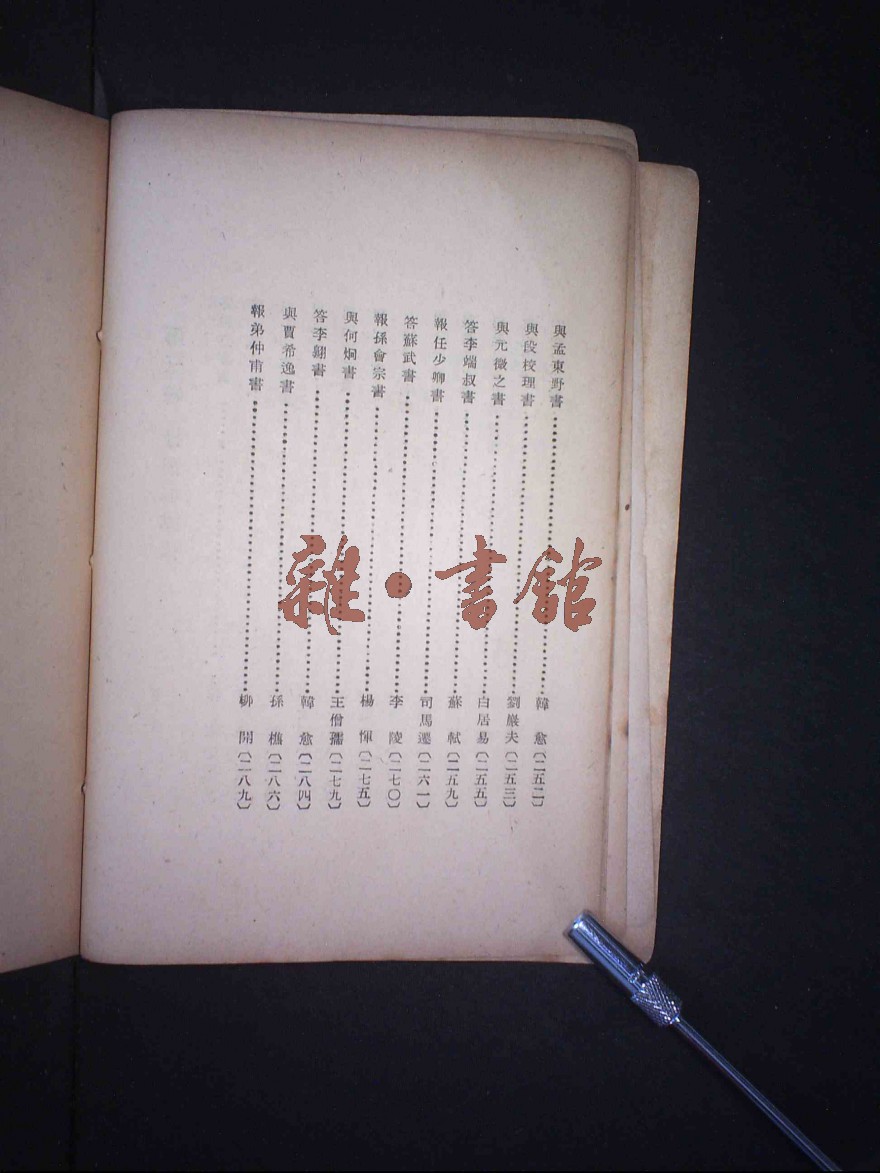 與孟東野書……韓　愈〔二五二〕
與段校理書……劉巖夫〔二五三〕
與元微之書……白居易〔二五五〕
答李端叔書……蘇　軾〔二五九〕
報任少卿書……司馬遷〔二六一〕
答蘇武書……李　陵〔二七〇〕
報孫會宗書……楊　惲〔二七五〕
與何炯書……王僧孺〔二七九〕
答李翱書……韓　愈〔二八四〕
與賈希逸書……孫　樵〔二八六〕
報弟仲甫書……柳　開〔二八九〕
雜・書館